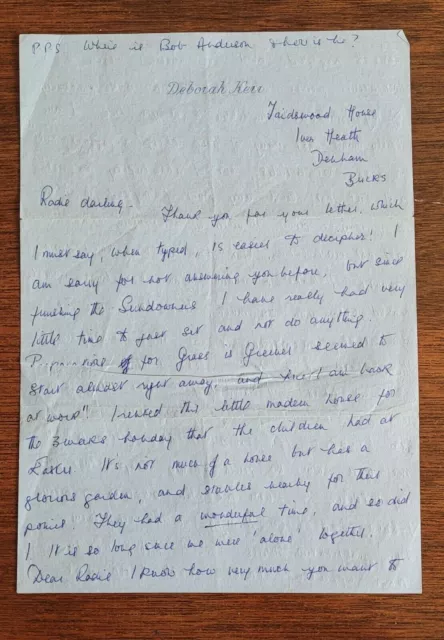 PPS Where is Bob Anderson where is he?
Deborah Kerr
House
Iver Heath
Denham
Bucks
Radie darling - Thank you for your letter, which
I must say, when typed, is easier to decipher! I
am sorry for not answering you before, but since
finishing the Sundowners I have really had very
little time to just sit and not do anything.
for Grass is Greener seemed to
start almost right away, and here I am back
at work!! I rented this little modern house for
the 3 weeks holiday that the children had at
Easter. It's not much of a house but has a
glorious garden, and stables nearby for their
ponies. They had a wonderful time, and so did
I. It is so long since we were 'alone' together.
Dear Radie I know how very much you want to